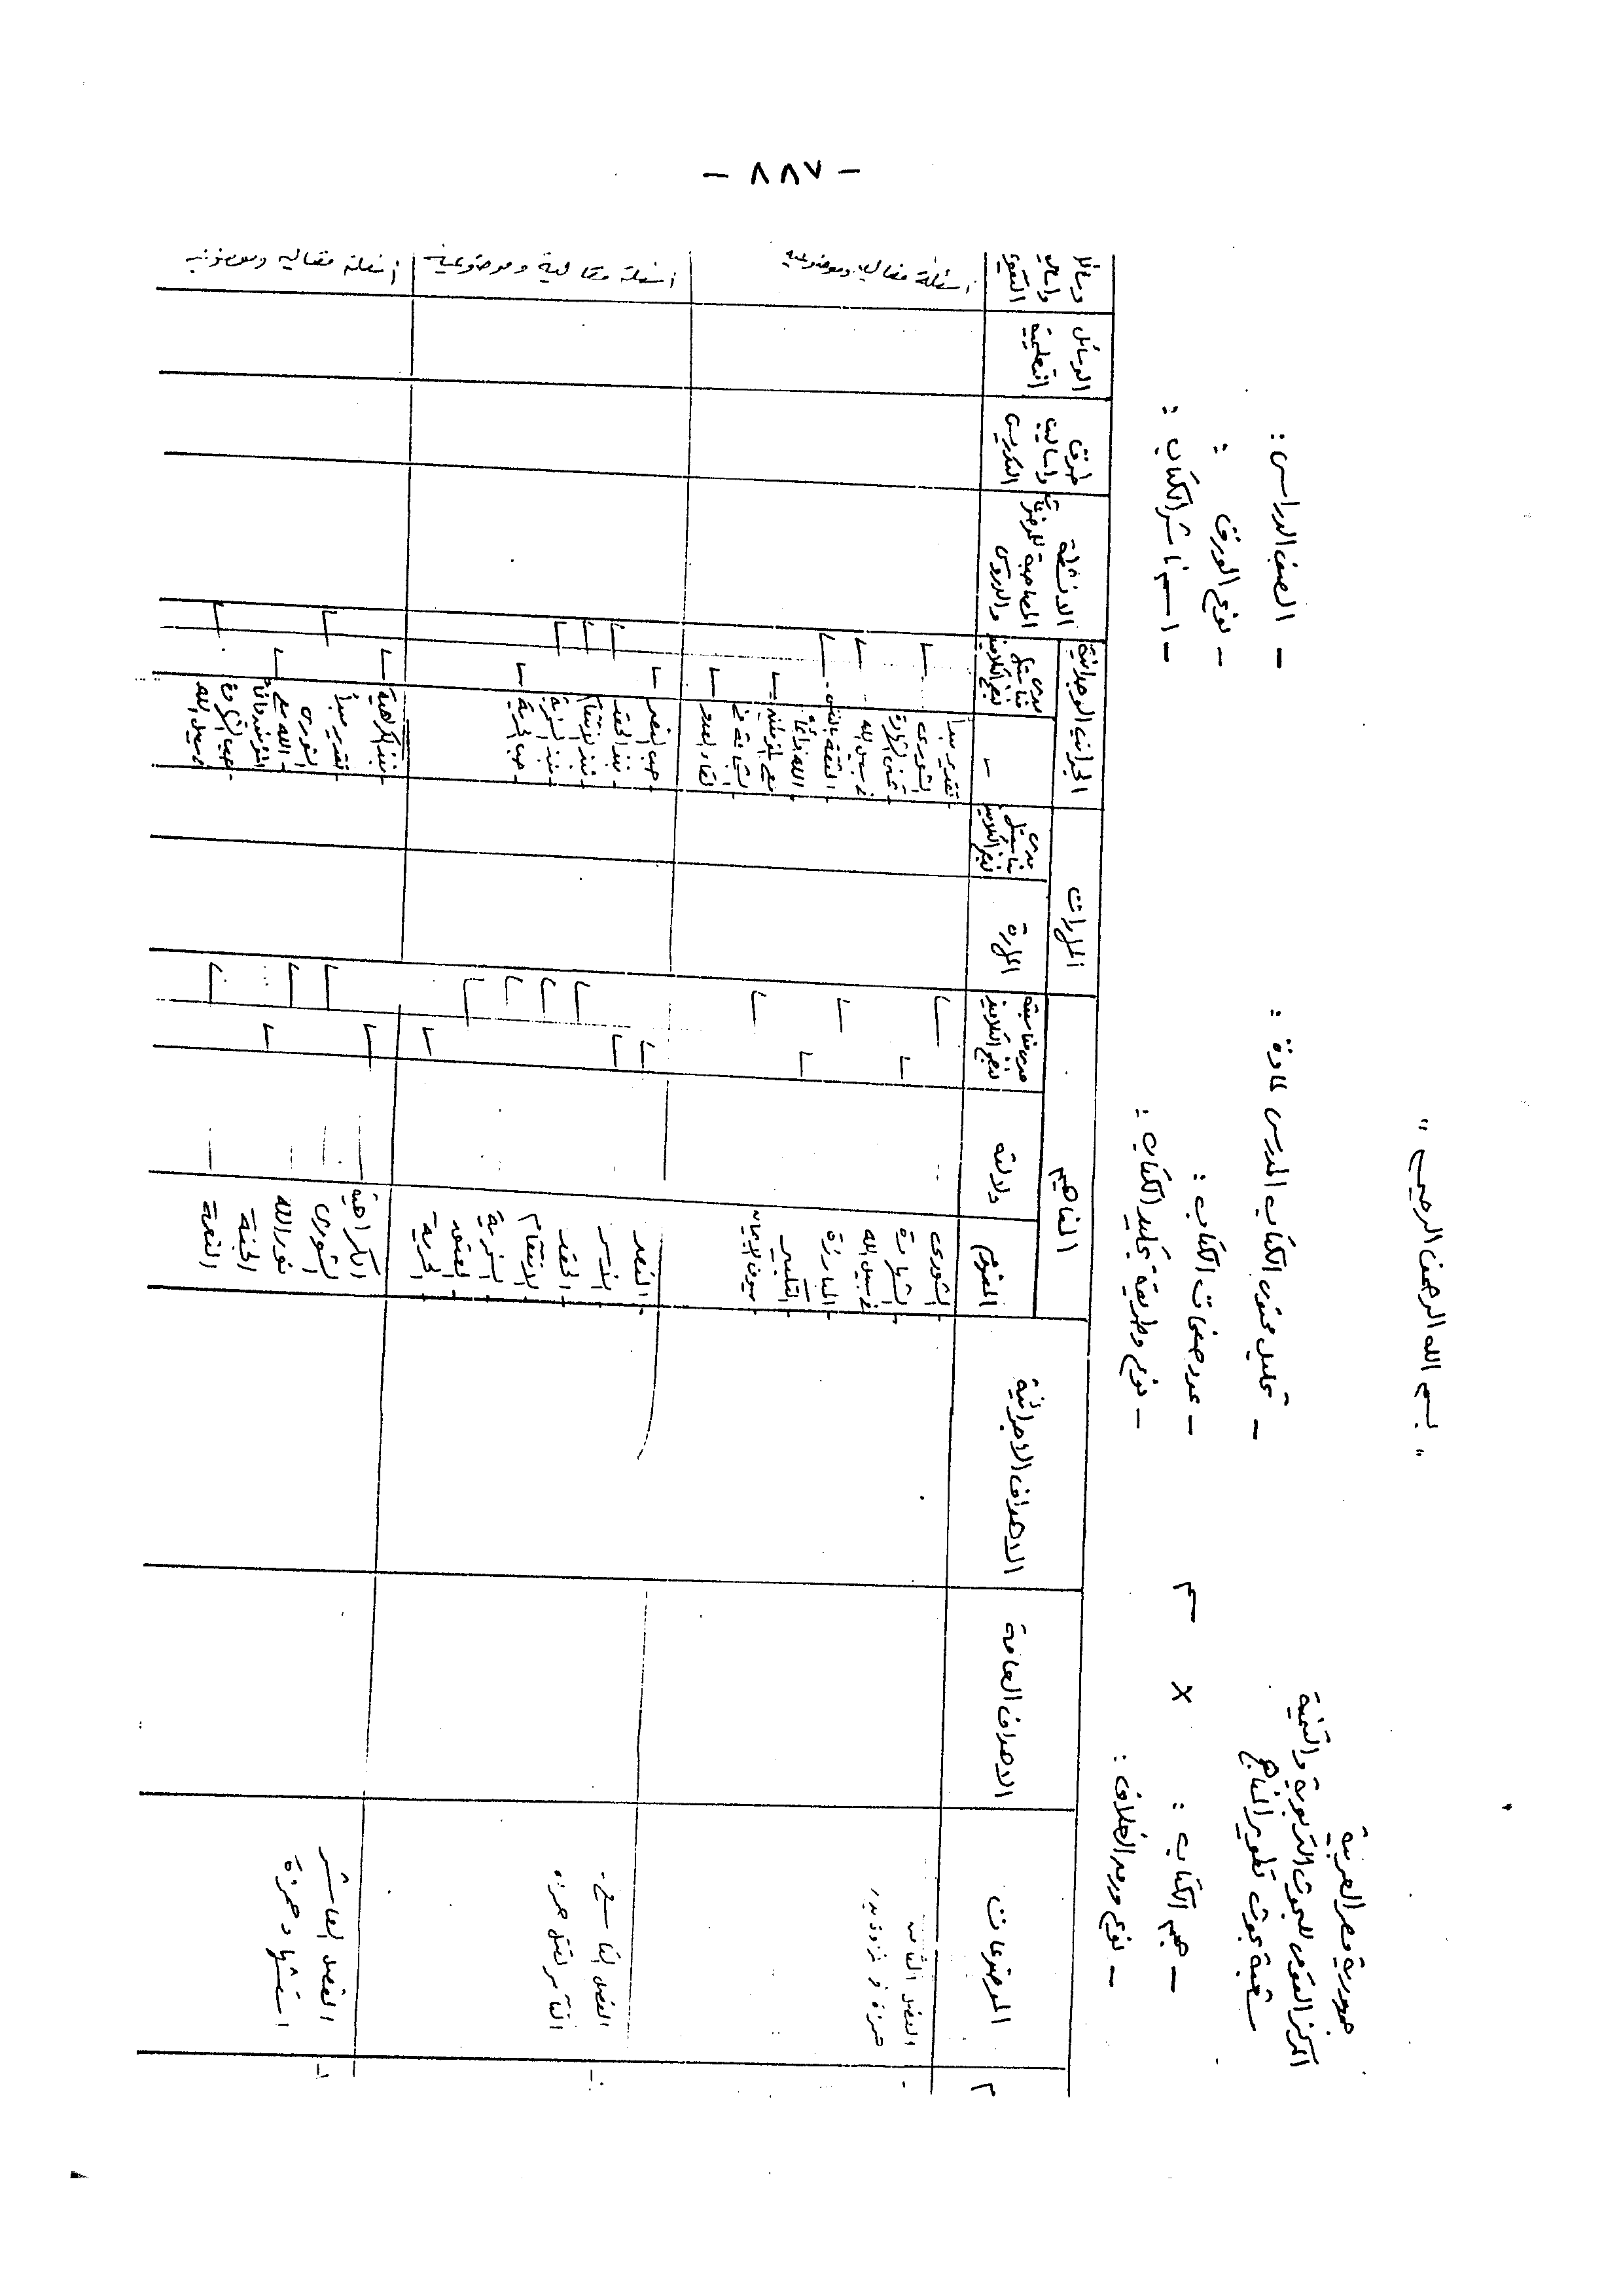 - ٨٨٧ -
" بسم الله الرحمن الرحيم "
جمهورية مصر العربية
المركز القومى للبحوث التربوية والتنمية
شعبة بحوث تطوير المناهج
- تحليل محتوى الكتاب المدرسى لمادة :
- الصف الدراسى :
- حجم الكتاب : × سم
- عدد صفحات الكتاب :
- نوع الورق :
- نوع ورسم الغلاف :
- نوع وطريقة تجليد الكتاب :
- اسم ناشر الكتاب :
م
الموضوعات
الاهداف العامة
الاهداف الاجرائية
المفاهيم
المفهوم
دلالته
مدى مناسبته لنمو التلاميذ
المهارات
المهارة
مدى مناسبتها لنمو التلاميذ
الجوانب الوجدانية
مدى مناسبتها لنمو التلاميذ
الانشطة المصاحبة للموضوعات والدروس
طرق واساليب التدريس
الوسائل التعليمية
وسائل واساليب التقويم
الفصل الثامن
حمزة فى غزوة بدر
- الشورى
- الشهادة
فى سبيل الله
- المبارزة
- التكبير
- تقدير مبدأ
الشورى
- تمنى الشهادة
فى سبيل الله
- الثقة بالنفس
لقاء العدو
اسئلة مقالية وموضوعية
الفصل التاسع
التآمر لقتل حمزة
- الغدر
- الحقد
- الانتقام
- السخرية
- العتق
- الحرية
- نبذ الحقد
- نبذ الانتقام
- نبذ السخرية
- حب الحرية
اسئلة مقالية وموضوعية
الفصل العاشر
استشهاد حمزة
الكراهية
الشورى
نور الله
الجنة
- نبذ الكراهية
- تقدير مبدأ
الشورى
- حب الشهادة
فى سبيل الله
اسئلة مقالية وموضوعية